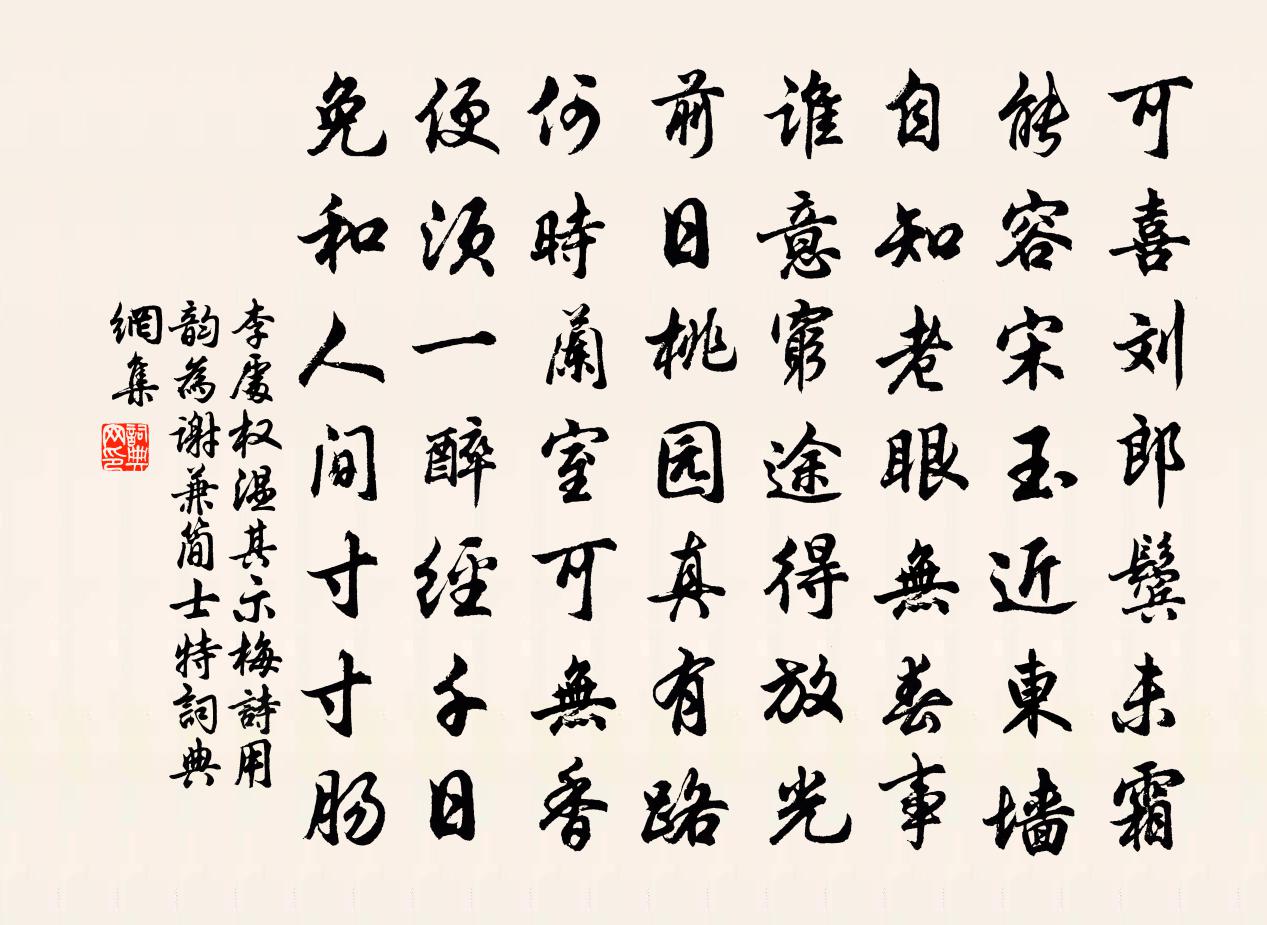 可喜刘郎鬓未霜
能容宋玉近東墙
自知老眼無春事
谁意窮途得放光
前日桃园真有路
何時蘭室可無香
便须一醉經千日
免和人间寸寸肠
李處权温其示梅詩用
韵為谢兼简士特詞典
網集
詞典網印